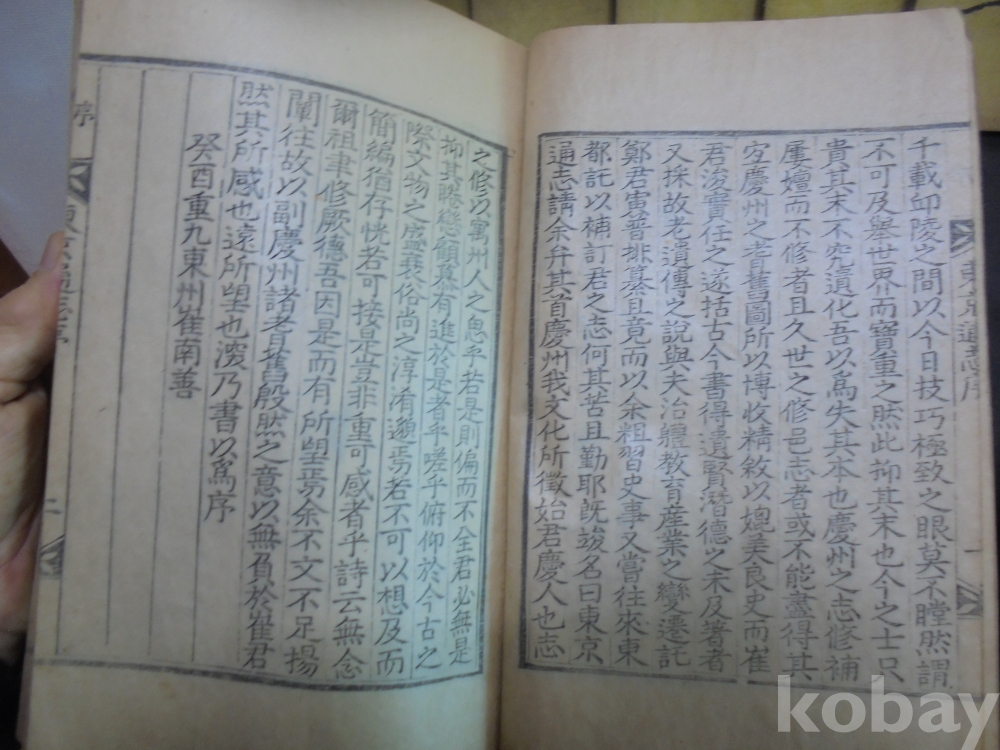 東京通志序
千載卽陵之間以今日技巧極致之眼莫不瞠然謂
不可及與世界而寶重之然此抑其末也今之士只
貴其末不究遺化吾以爲失其本也慶州之志修補
屢嬗而不修者且久世之修邑志者或不能盡得其
空慶州之老舊圖所以博收精敘以媲美良史而崔
君浚實任之遂括古今書得遺賢潛德之未及著者
又採故老遺傳之說與夫治軆教育産業之變遷託
鄭君寅普排纂且竟而以余粗習史事又嘗往來東
都託以補訂君之志何其苦且勤耶旣竣名曰東京
通志請余弁其首慶州我文化所徵始君慶人也志
一
之修以寓州人之思乎若是則偏而不全君必無是
抑其睠戀顧慕有進於是者乎嗟乎俯仰於今古之
際文物之盛衰俗尚之淳淆邈焉若不可以想及而
簡編猶存恍若可接是豈非重可感者乎詩云無念
爾祖聿修厥德吾因是而有所望焉余不文不足揚
闡往故以副慶州諸耆舊殷然之意以無負於崔君
然其所感也遠所望也深乃書以爲序
癸酉重九東州崔南善
序
東京通志序
二
kobay